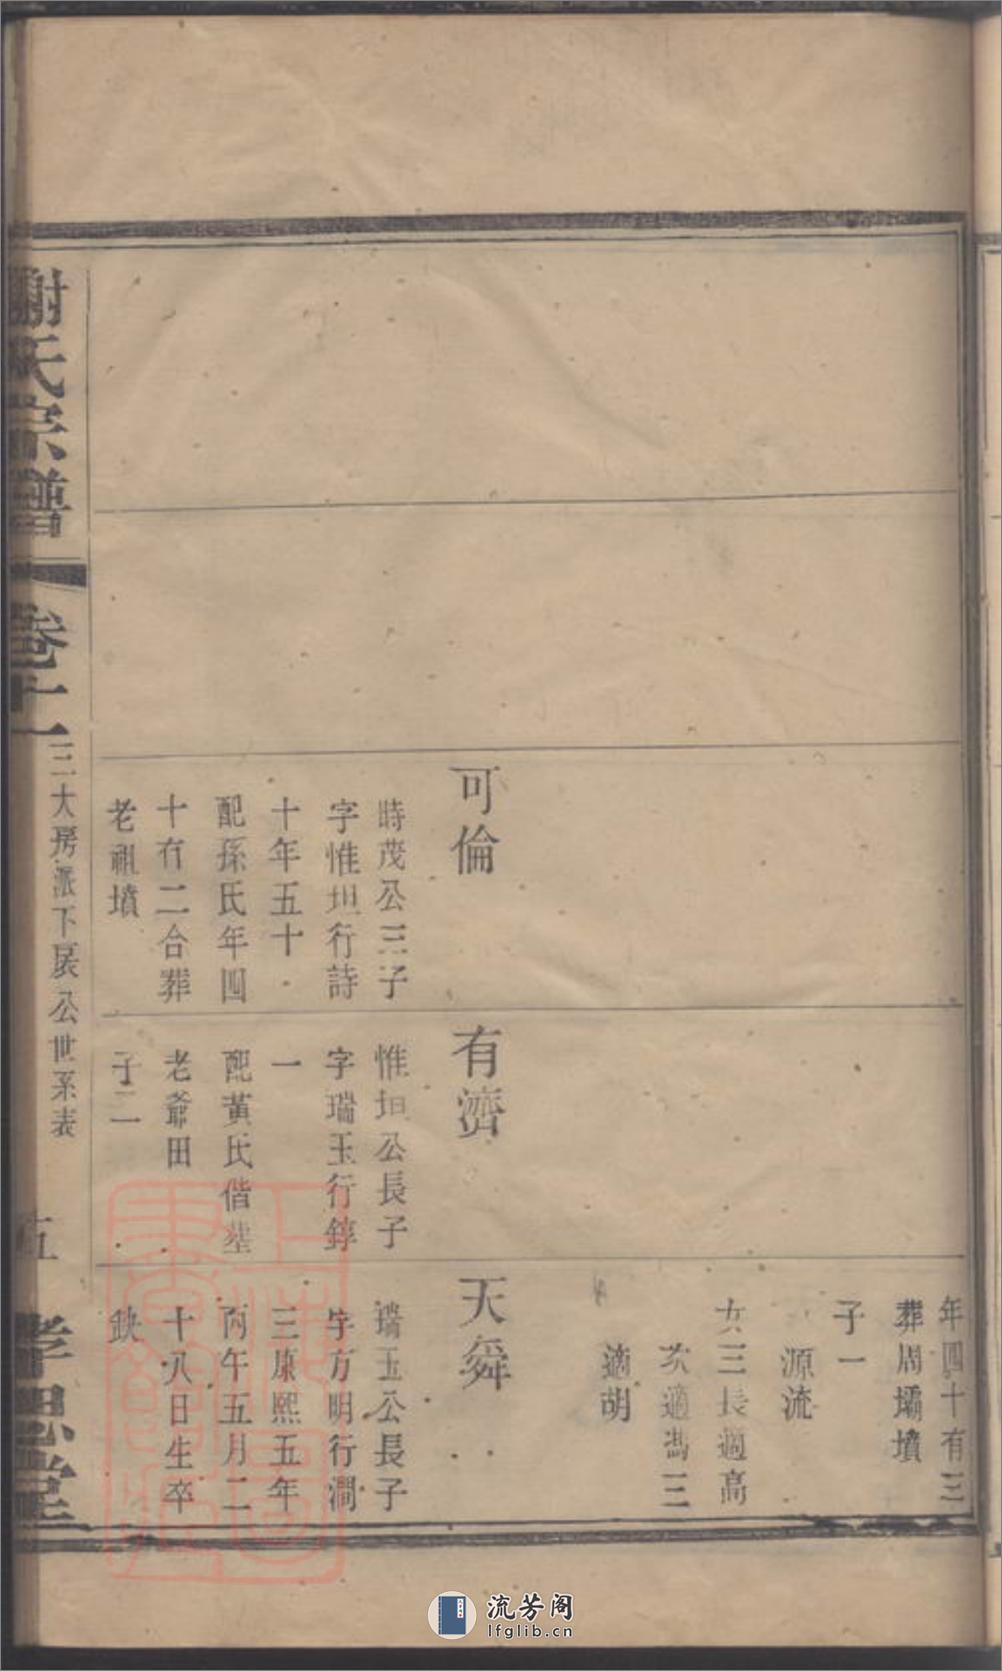 可倫
時茂公三子
字惟坦行詩
十年五十
配孫氏年四
十有二合葬
老祖墳
有濟
惟坦公長子
字瑞玉行錞
一
配黃氏偕塟
老爺田
子二
年四十有三
葬周壩墳
子一
源流
女三長適高
次適馮三
適胡
天舜
瑞玉公長子
字方明行澗
三康熙五年
丙午五月二
十八日生卒
缺
謝氏宗譜
卷十一
三大房派下扆公世系表
五
孝思堂
流芳阁
lfglib.cn